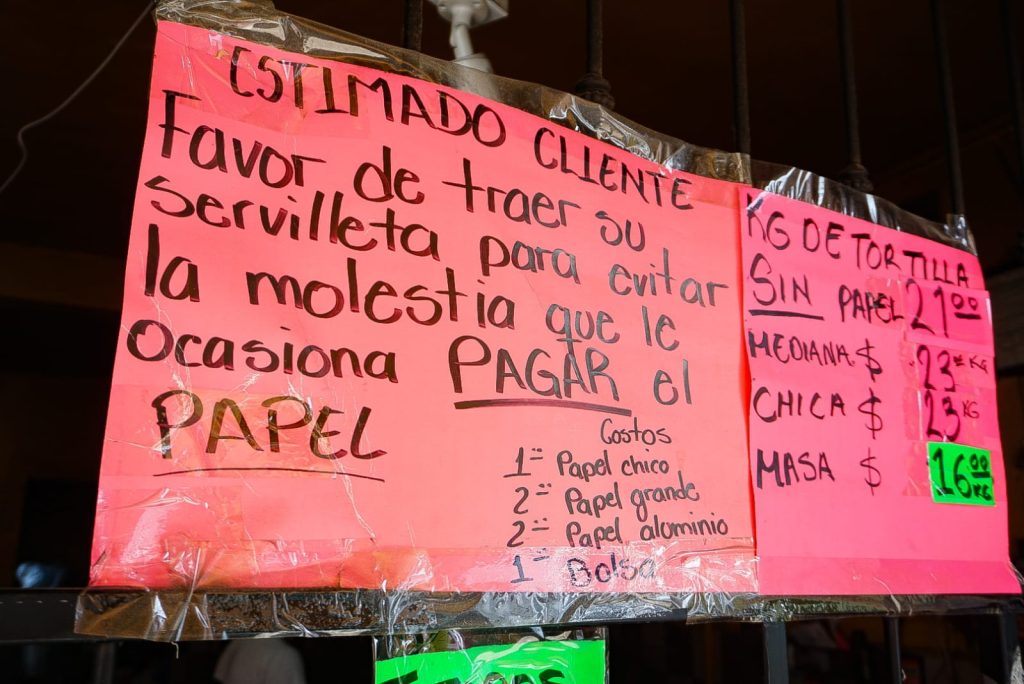 ESTIMADO CLIENTE
Favor de traer su
servilleta para evitar
la molestia que le
ocasiona PAGAR el
PAPEL
Costos
1= Papel chico
2= Papel grande
2= Papel aluminio
1= Bolsa
KG DE TORTILLA
SIN PAPEL 21.00
MEDIANA $ 23 KG
CHICA $ 23 KG
MASA $ 16.00 KG